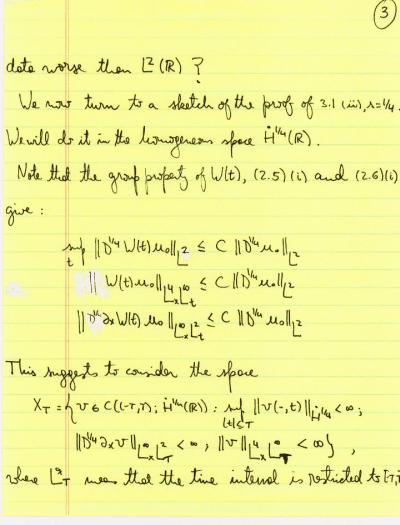 3
data worse than L²(ℝ) ?
We now turn to a sketch of the proof of 3.1 (iii), s=1/4.
We will do it in the homogeneous space Ḣ^{1/4}(ℝ).
Note that the group property of W(t), (2.5)(i) and (2.6)(i)
give :
sup_t ‖D^{1/4} W(t)u₀‖_{L²} ≤ C ‖D^{1/4} u₀‖_{L²}
‖W(t)u₀‖_{L⁴_x L^∞_t} ≤ C ‖D^{1/4} u₀‖_{L²}
‖D^{1/4} ∂x W(t)u₀‖_{L^∞_x L²_t} ≤ C ‖D^{1/4} u₀‖_{L²}
This suggests to consider the space
X_T = { v ∈ C((-T,T); Ḣ^{1/4}(ℝ)) : sup_{|t|≤T} ‖v(-,t)‖_{Ḣ^{1/4}} < ∞ ;
‖D^{1/4} ∂x v‖_{L^∞_x L²_T} < ∞ ; ‖v‖_{L⁴_x L^∞_T} < ∞ } ,
where means that the time interval is restricted to [-T,T]